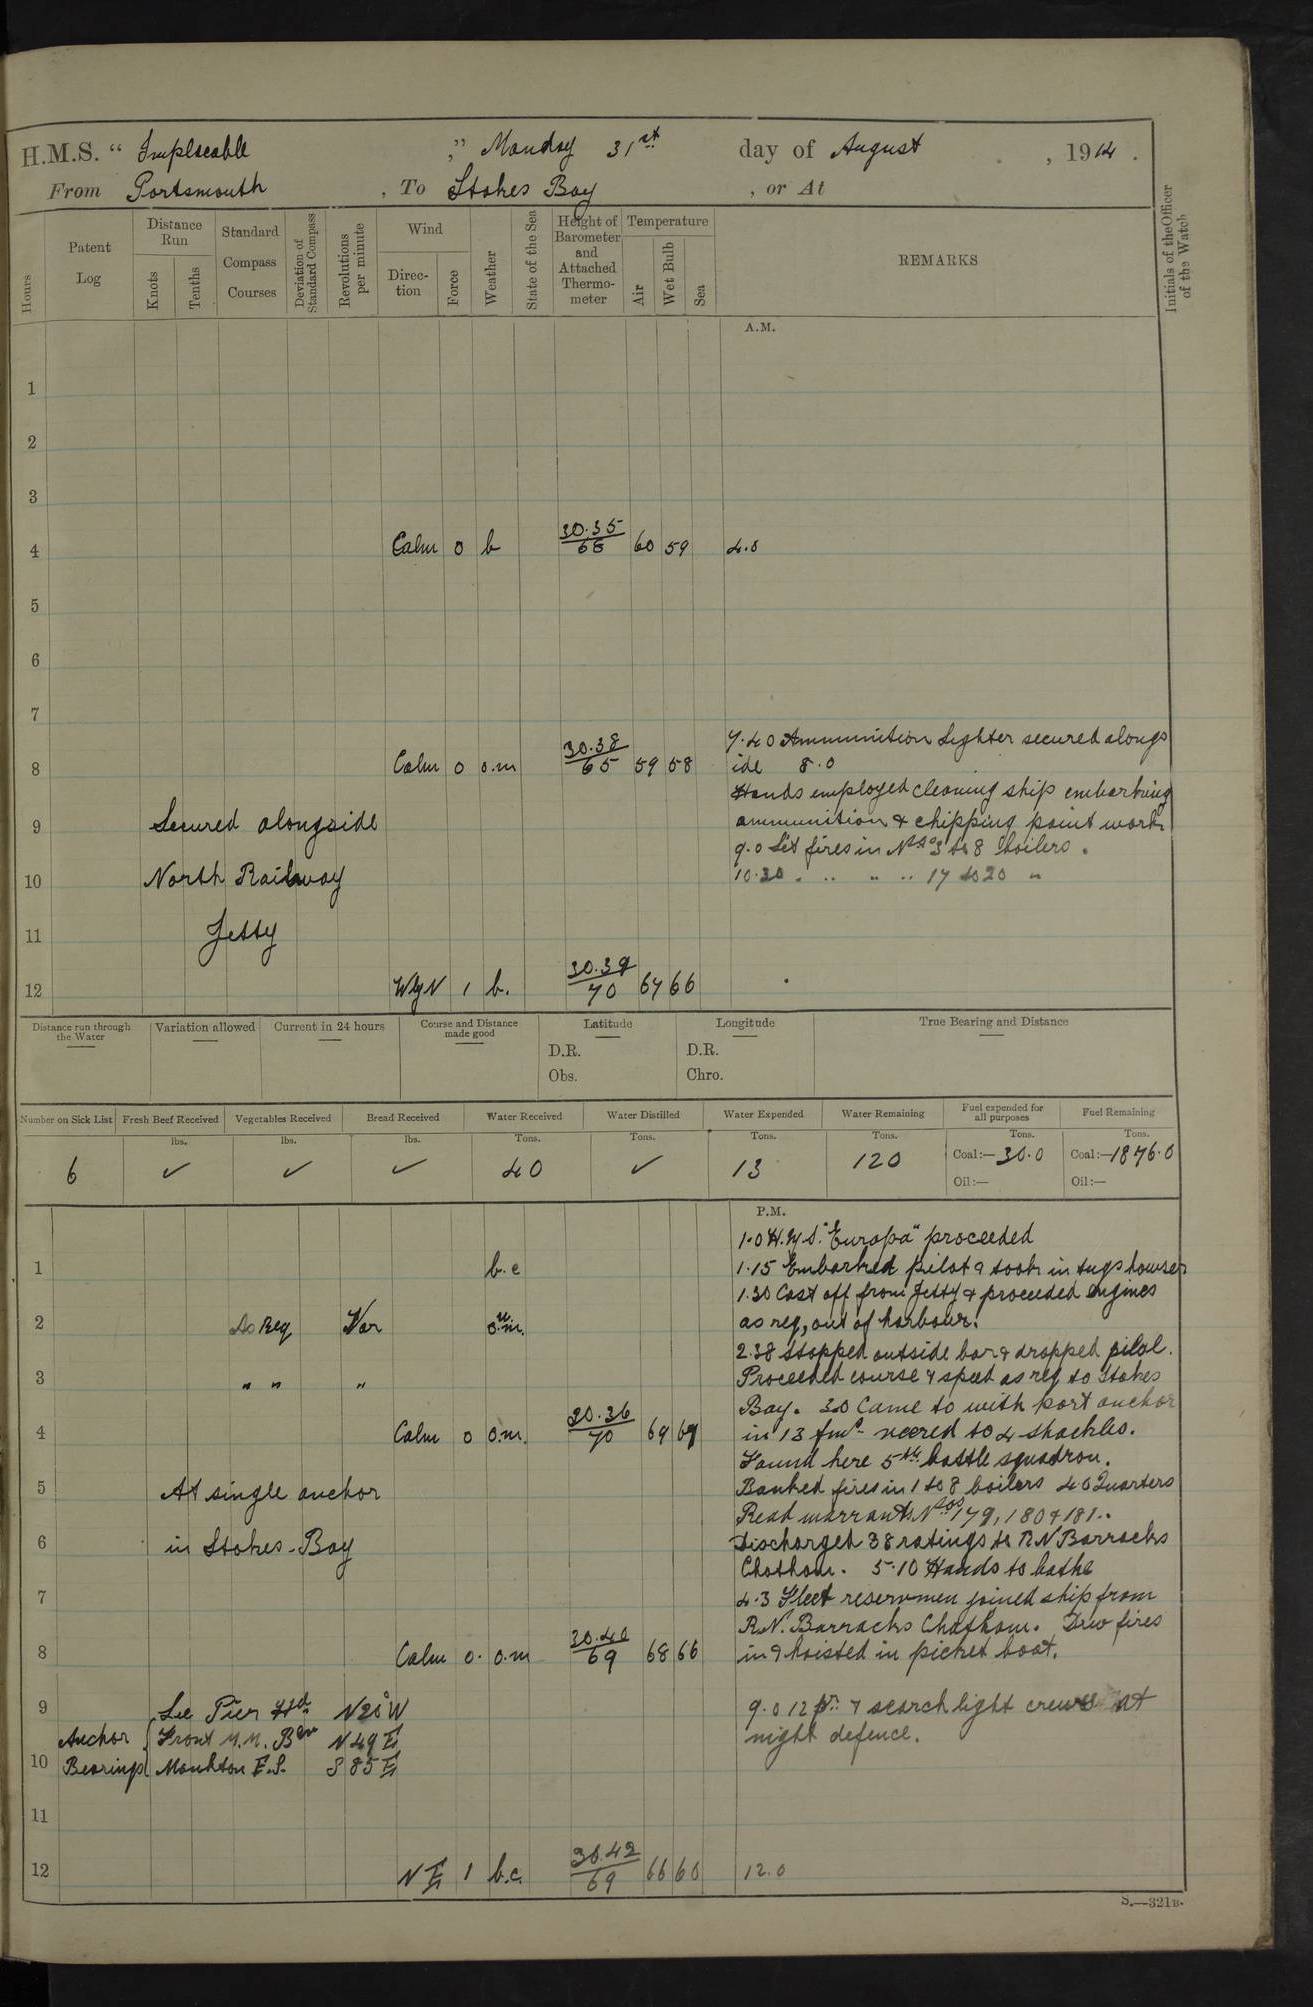 H.M.S. “ Implacable ,” Monday 31st day of August , 1914 .
From Portsmouth , To Stokes Bay , or At
Hours
Patent Log
Distance Run
Knots
Tenths
Standard Compass Courses
Deviation of Standard Compass
Revolutions per minute
Wind
Direction
Force
Weather
State of the Sea
Height of Barometer and Attached Thermometer
Temperature
Air
Wet Bulb
Sea
REMARKS
Initials of the Officer of the Watch
A.M.
1
2
3
4 Calm 0 b 30.35/68 60 59 4.0
5
6
7
7.40 Ammunition Lighter secured alongs
8 Calm 0 o.m 30.38/65 59 58 ide 8.0
Hands employed cleaning ship embarking
9 Secured alongside ammunition & chipping paint work
9.0 Lit fires in Nos 3 to 8 boilers.
10 North Railway 10.30 " " " " 17 to 20 "
11 Jetty
12 WbyN 1 b. 30.39/70 67 66
Distance run through the Water
Variation allowed
Current in 24 hours
Course and Distance made good
Latitude
D.R.
Obs.
Longitude
D.R.
Chro.
True Bearing and Distance
Number on Sick List
Fresh Beef Received
Vegetables Received
Bread Received
Water Received
Water Distilled
Water Expended
Water Remaining
Fuel expended for all purposes
Fuel Remaining
lbs. lbs. lbs. Tons. Tons. Tons. Tons. Tons. Tons.
6 ✓ ✓ ✓ 40 ✓ 13 120 Coal:— 30.0 Coal:— 1876.0
Oil:— Oil:—
P.M.
1.0 H.M.S. "Europa" proceeded
1 b.c 1.15 Embarked pilot & took in tugs hawser
1.30 Cast off from Jetty & proceeded engines
2 As Req Var as req, out of harbour.
2.38 Stopped outside bar & dropped pilot.
3 " " " Proceeded course & speed as req to Stokes
Bay. 3.0 Came to with port anchor
4 Calm 0 o.m. 30.36/70 69 67 in 13 fms veered to 4 shackles.
Found here 5th battle squadron.
5 At single anchor Banked fires in 1 to 8 boilers 4.0 Quarters
Read warrants Nos 179, 180 & 181.
6 in Stokes Bay Discharged 38 ratings to RN Barracks
Chatham. 5.10 Hands to bathe
7 43 Fleet reservemen joined ship from
R.N. Barracks Chatham. Drew fires
8 Calm 0. o.m 30.40/69 68 66 in & hoisted in picket boat.
9 Lee Pier Hd N20°W 9.0 12 pr & search light crews at
Anchor Front M.M. Bcn N49E night defence.
10 Bearings Monkton F.S. S85E
11
12 NE 1 b.c. 30.42/69 66 60 12.0
S.—321B.